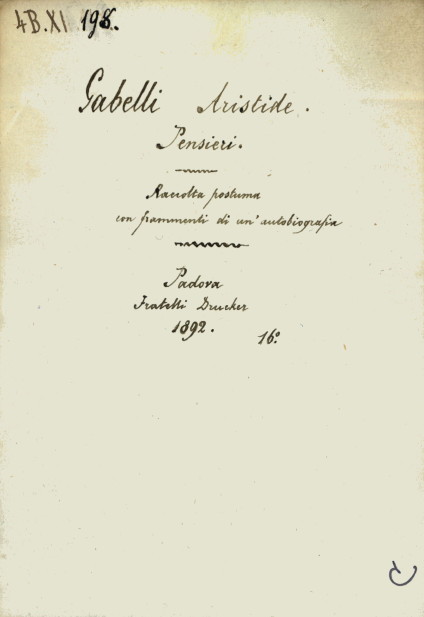 4B. XI 198.
Gabelli Aristide.
Pensieri.
Raccolta postuma
con frammenti di un' autobiografia
Padova
Fratelli Drucker
1892.
16º